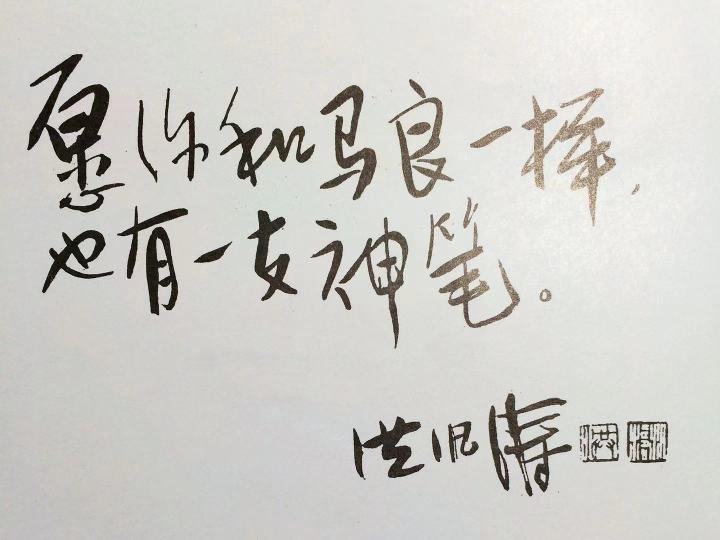 愿你和马良一样,
也有一支神笔。
洪汛涛